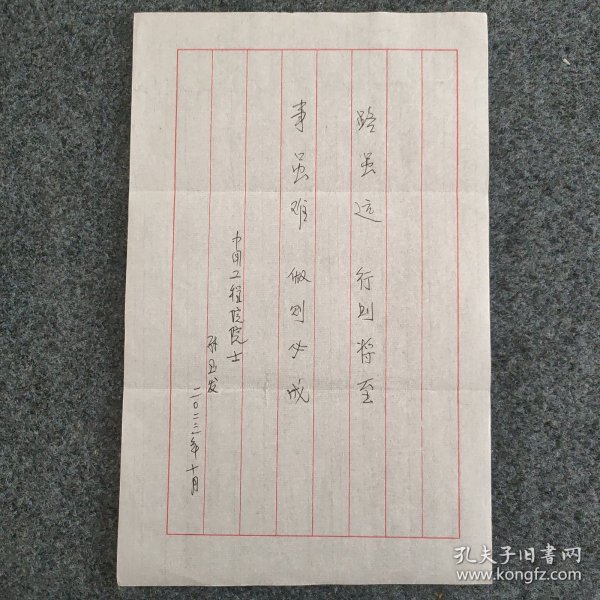 路虽远 行则将至
事虽难 做则必成
中国工程院院士
孙玉发
二〇二三年十月
孔夫子旧書网
www.kongfz.com